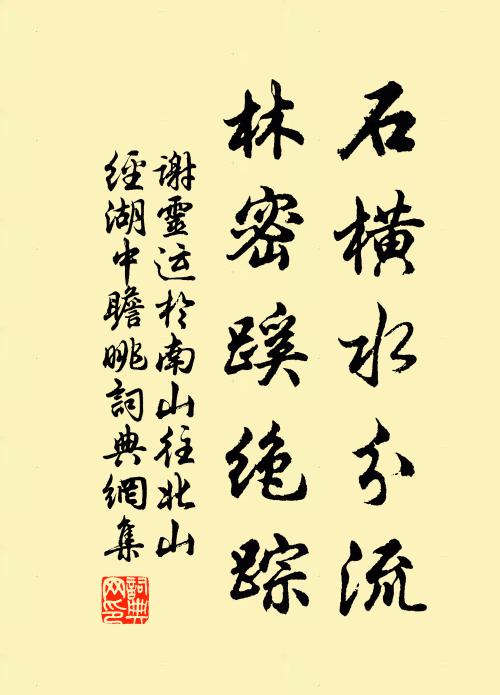 石橫水分流
林密蹊绝踪
謝靈运於南山往北山
經湖中瞻眺詞典網集
詞典
网印